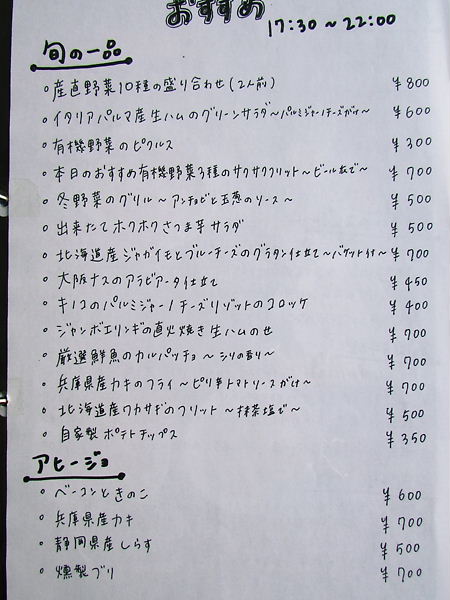 おすすめ
17:30～22:00
旬の一品
◦産直野菜10種の盛り合わせ(2人前) ¥800
◦イタリアパルマ産生ハムのグリーンサラダ～パルミジャーノチーズがけ～ ¥600
◦有機野菜のピクルス ¥300
◦本日のおすすめ有機野菜3種のサクサクフリット～ビール衣で～ ¥700
◦冬野菜のグリル～アンチョビと玉葱のソース～ ¥500
◦出来たてホクホクさつま芋サラダ ¥500
◦北海道産ジャガイモとブルーチーズのグラタン仕立て～バゲット付～ ¥700
◦大阪ナスのアラビアータ仕立て ¥450
◦キノコのパルミジャーノチーズリゾットのコロッケ ¥400
◦ジャンボエリンギの直火焼き生ハムのせ ¥700
◦厳選鮮魚のカルパッチョ～シソの香り～ ¥700
◦兵庫県産カキのフライ～ピリ辛トマトソースがけ～ ¥700
◦北海道産ワカサギのフリット～抹茶塩で～ ¥500
◦自家製ポテトチップス ¥350
アヒージョ
◦ベーコンときのこ ¥600
◦兵庫県産カキ ¥700
◦静岡県産しらす ¥500
◦燻製ブリ ¥700